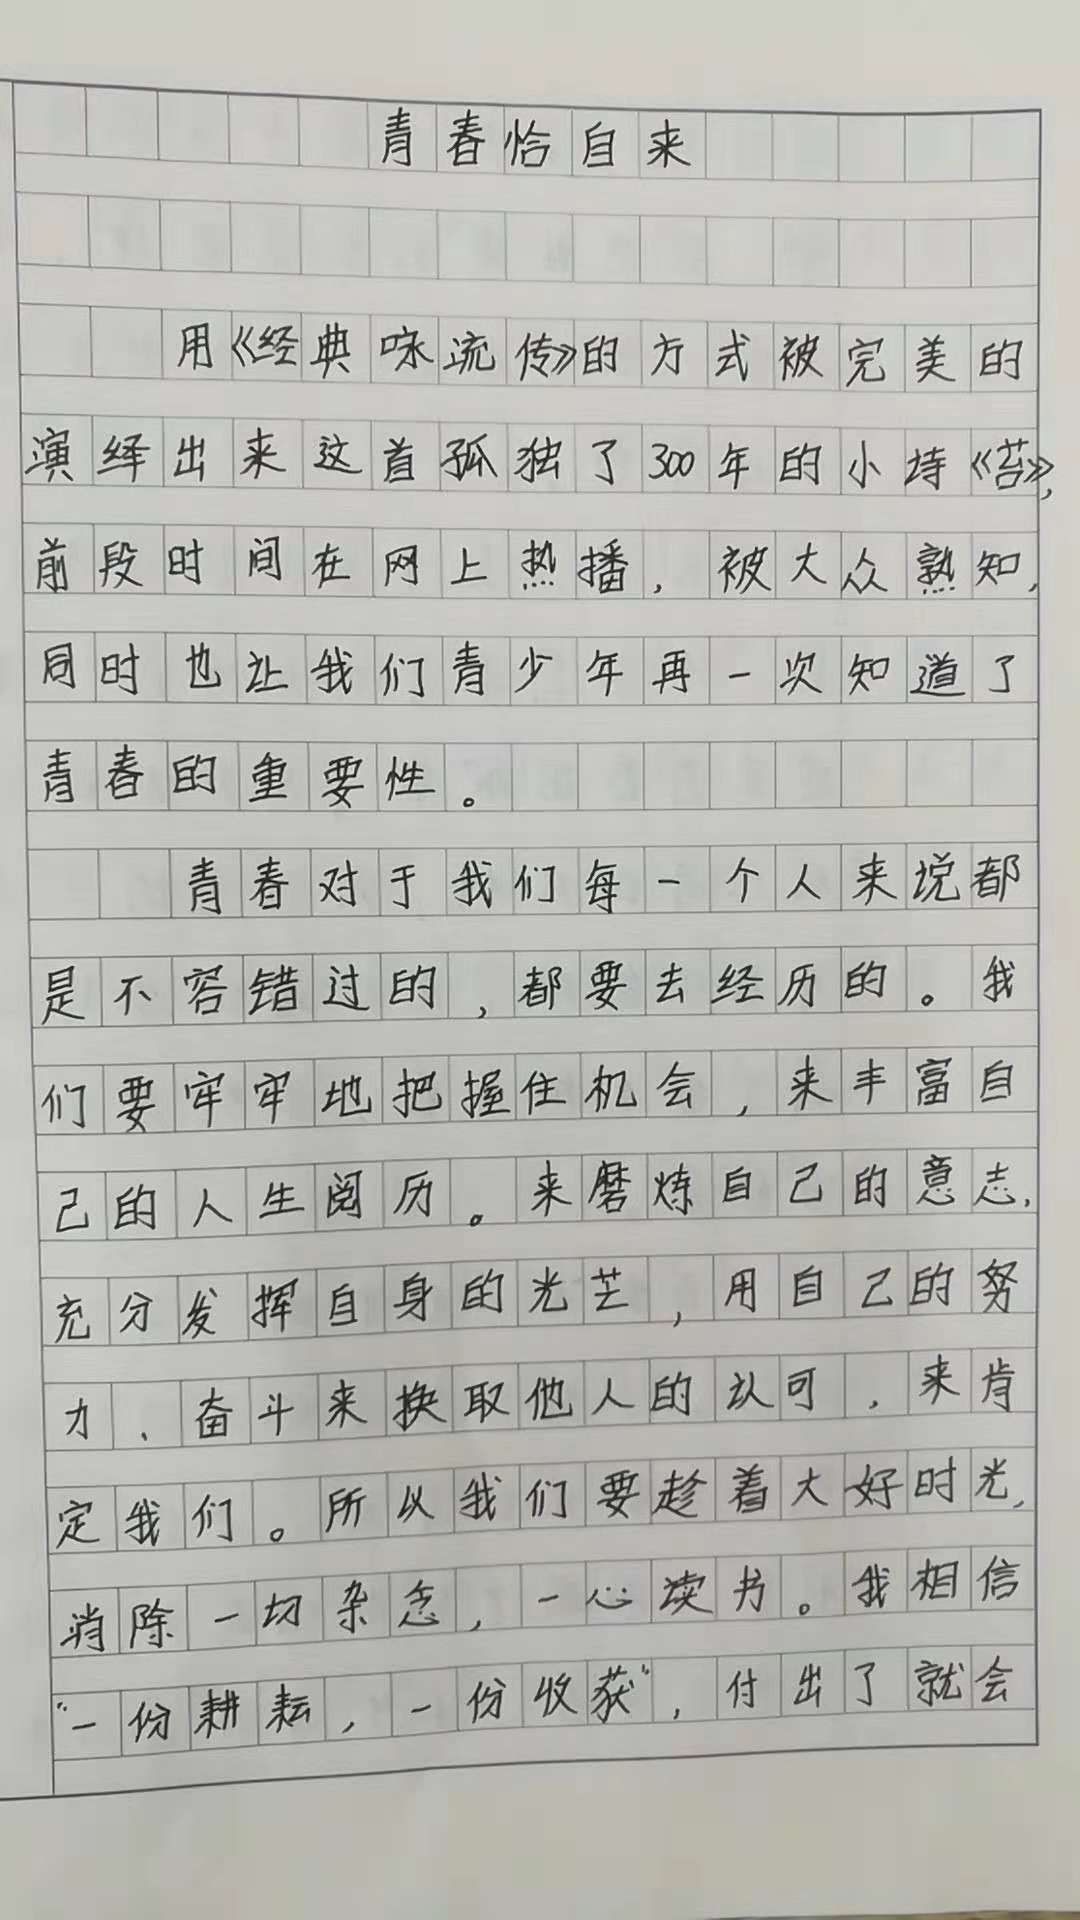 青春恰自来
用《经典咏流传》的方式被完美的
演绎出来这首孤独了300年的小诗《苔》,
前段时间在网上热播,被大众熟知,
同时也让我们青少年再一次知道了
青春的重要性。
青春对于我们每一个人来说都
是不容错过的,都要去经历的。我
们要牢牢地把握住机会,来丰富自
己的人生阅历。来磨炼自己的意志,
充分发挥自身的光芒,用自己的努
力、奋斗来换取他人的认可,来肯
定我们。所以我们要趁着大好时光,
消除一切杂念,一心读书。我相信
“一份耕耘,一份收获”,付出了就会